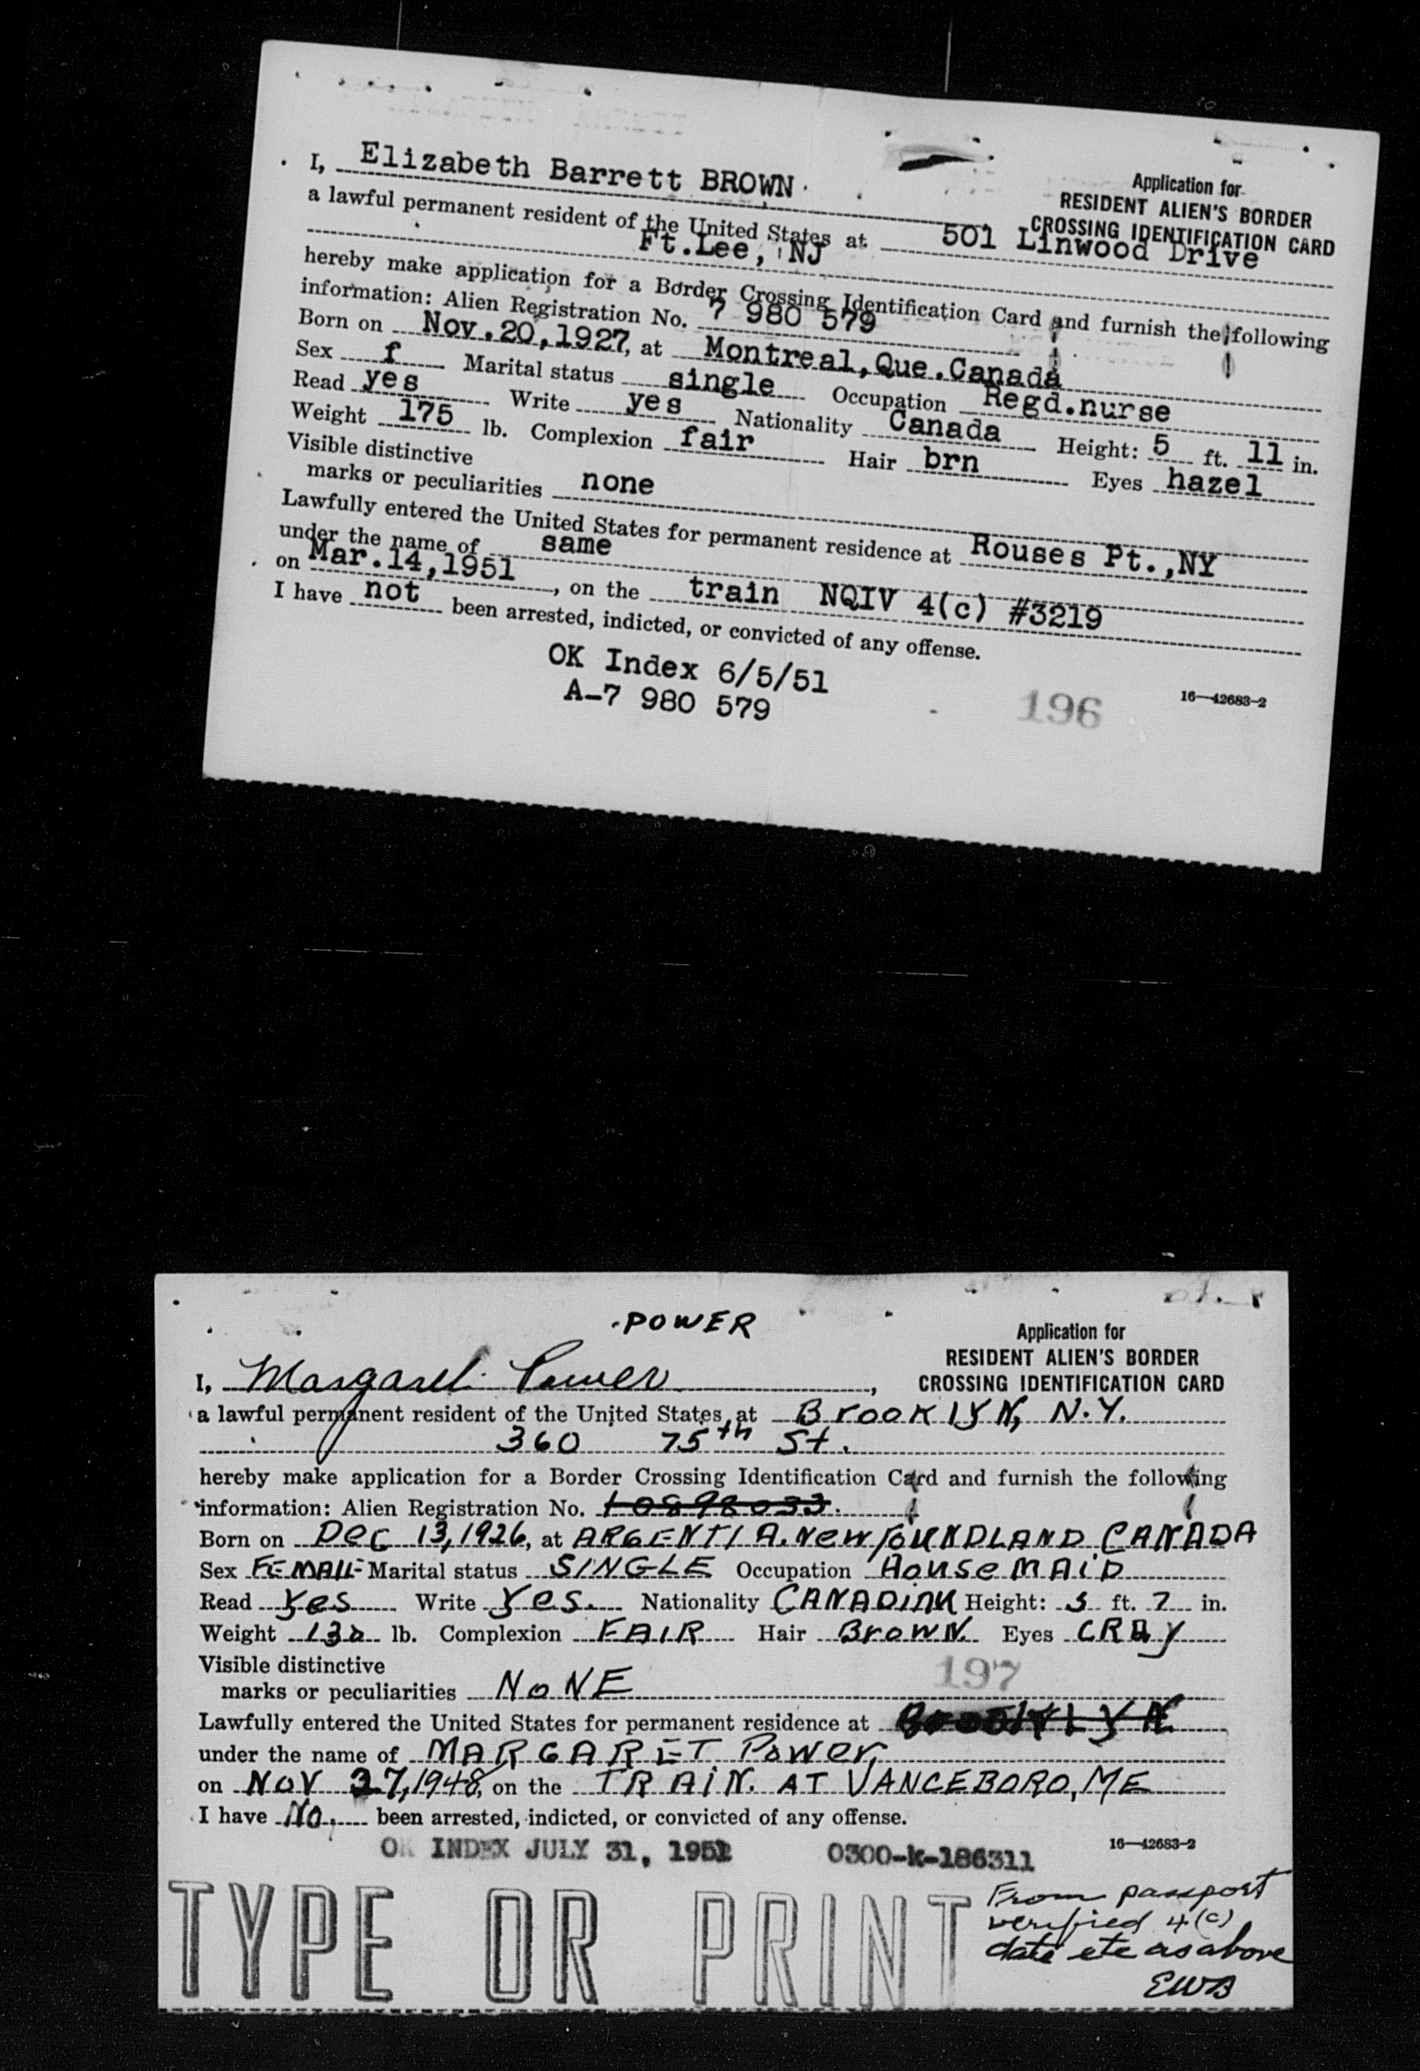 Application for
RESIDENT ALIEN'S BORDER
CROSSING IDENTIFICATION CARD
I, Elizabeth Barrett BROWN
a lawful permanent resident of the United States at 501 Linwood Drive
Ft.Lee, NJ
hereby make application for a Border Crossing Identification Card and furnish the following
information: Alien Registration No. 7 980 579
Born on Nov.20,1927, at Montreal,Que.Canada
Sex f Marital status single Occupation Regd.nurse
Read yes Write yes Nationality Canada Height: 5 ft. 11 in.
Weight 175 lb. Complexion fair Hair brn Eyes hazel
Visible distinctive
marks or peculiarities none
Lawfully entered the United States for permanent residence at Rouses Pt.,NY
under the name of same
on Mar.14,1951, on the train NQIV 4(c) #3219
I have not been arrested, indicted, or convicted of any offense.
OK Index 6/5/51
A-7 980 579
196
16—42683-2
POWER
Application for
RESIDENT ALIEN'S BORDER
CROSSING IDENTIFICATION CARD
I, Margaret Power,
a lawful permanent resident of the United States at BrooKlyN, N.Y.
360 75th St.
hereby make application for a Border Crossing Identification Card and furnish the following
information: Alien Registration No. 10898033.
Born on Dec 13,1926, at ARGENTIA.NewfOUNDLAND CANADA
Sex FEMALE Marital status SINGLE Occupation HouseMAiD
Read yes Write yes. Nationality CANADiAN Height: 5 ft. 7 in.
Weight lb. Complexion FAIR Hair BrowN. Eyes GRAy
197
Visible distinctive
marks or peculiarities NoNE
Lawfully entered the United States for permanent residence at BrooKLyN
under the name of MARGARET Power,
on NOV 27,1948, on the TRAiN. AT VANCEBORO, ME
I have No. been arrested, indicted, or convicted of any offense.
OK INDEX JULY 31, 1951 0300-k-186311
16—42683-2
TYPE OR PRINT
From passport
verified 4(c)
date etc as above
EWB